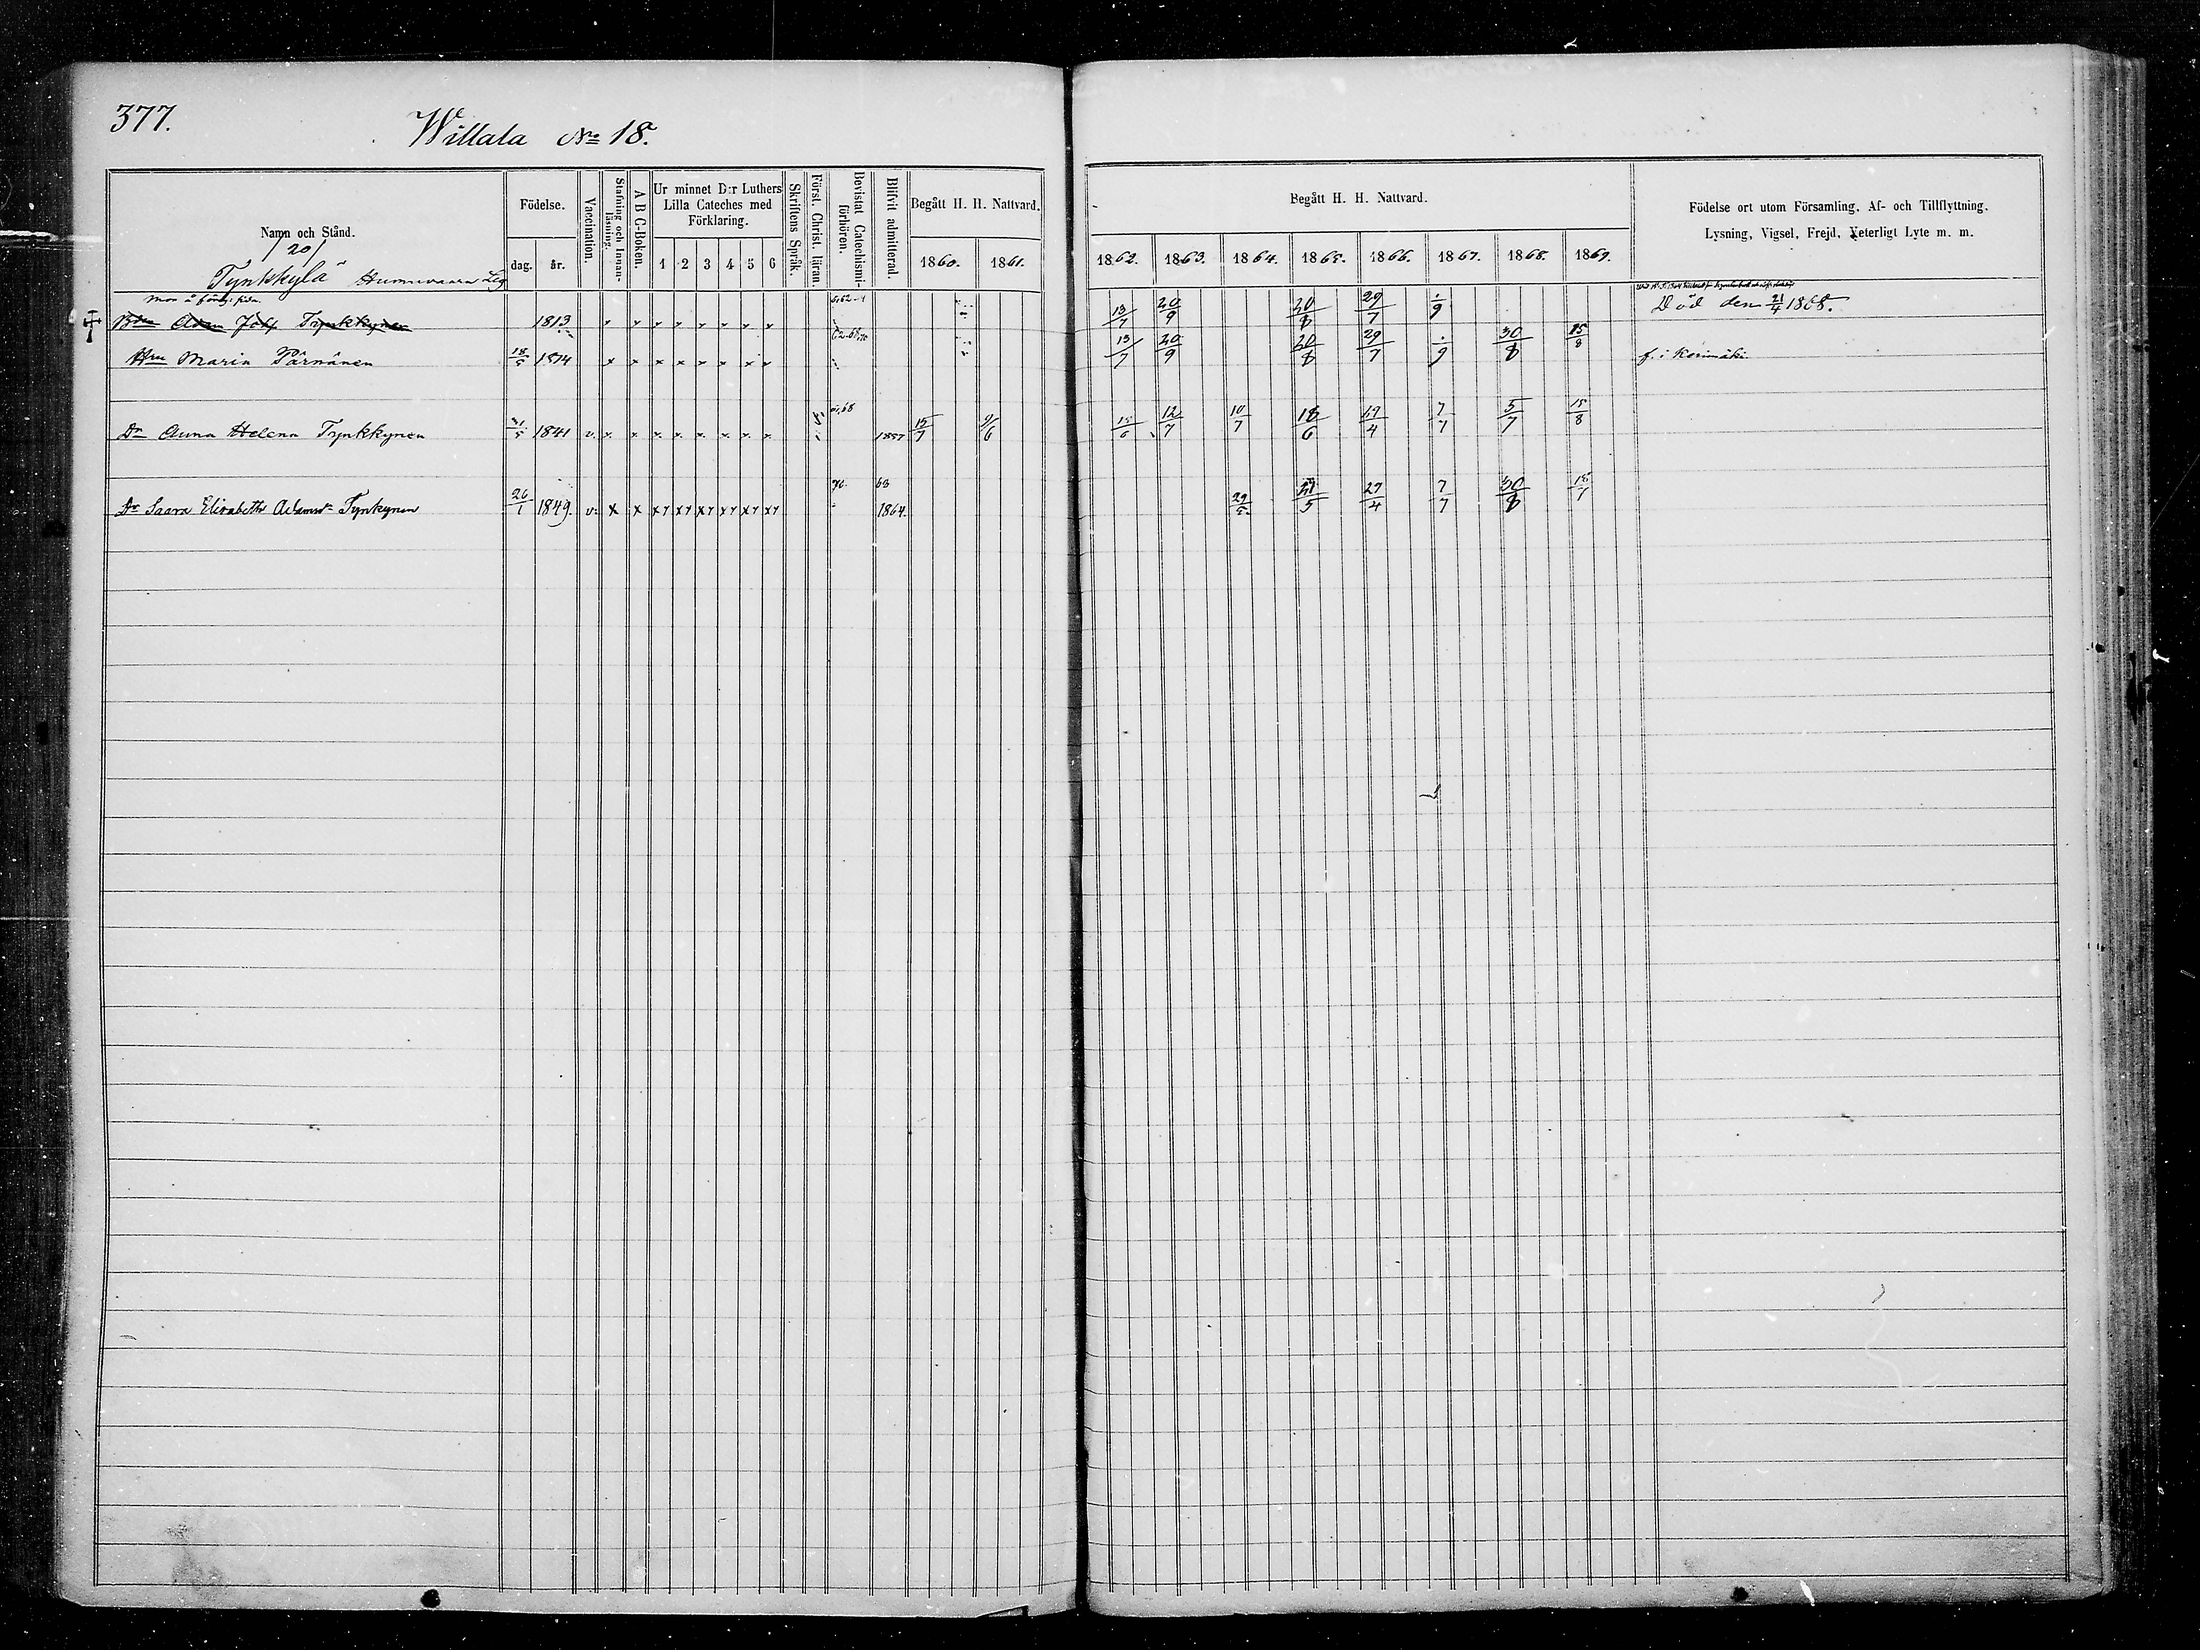 377.
Willala No 18.
Namn och Stånd.
Födelse.
dag.
år.
Vaccination.
Stafning och Innan-
läsning.
A B C-Boken.
Ur minnet D:r Luthers
Lilla Cateches med
Förklaring.
1 2 3 4 5 6
Skriftens Språk.
Först. Christ. läran.
Bevistat Catechismi-
förhören.
Blifvit admitterad.
Begått H. H. Nattvard.
1860. 1861.
Begått H. H. Nattvard.
1862. 1863. 1864. 1865. 1866. 1867. 1868. 1869.
Födelse ort utom Församling, Af- och Tillflyttning.
Lysning, Vigsel, Frejd, Veterligt Lyte m. m.
/20/
Tynkkylä
Adam Tynkkynen 1813 13/7 20/9 20/8 29/7 Död den 21/4 1868.
Maria Pärnänen 18/5 1814 x x x x x x x x 13/7 20/9 20/8 29/7 30/8 15/8 f. i Kerimäki
Dr Anna Helena Tynkkynen 31/5 1841 v. x. x. x. x. x. x. x. x. 1857 15/7 9/6 15/6 12/7 10/7 18/6 19/4 7/7 5/7 15/8
63
Dr Saara Elisabeth Adamsdr Tynkynen 26/1 1849. v. x x xx xx xx xx xx xx 1864. 29/5 21/5 27/4 7/7 30/8 18/7